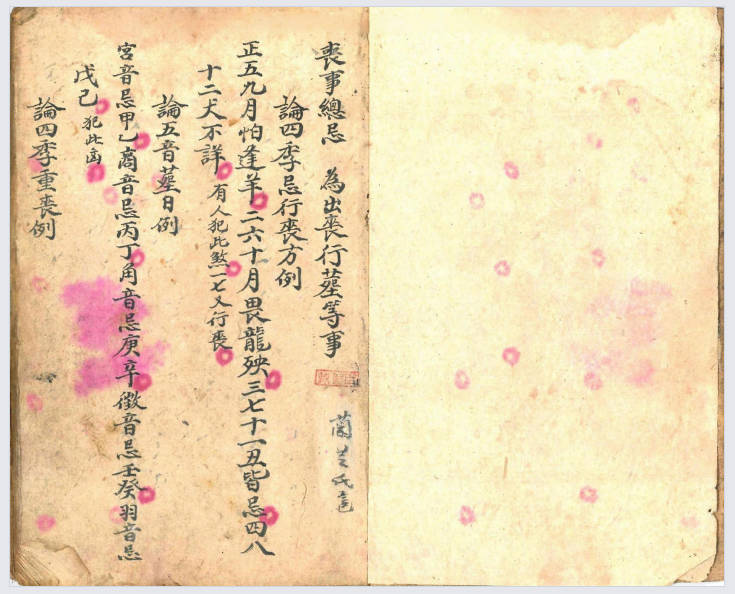 喪事總忌 為出喪行塟等事
論四季忌行喪方例
正五九月怕逢羊二六十月畏龍殃三七十一丑皆忌四八
十二犬不詳 有人犯此煞一七又行喪
論五音塟日例
宮音忌甲乙商音忌丙丁角音忌庚辛徵音忌壬癸羽音忌
戊己 犯此凶
論四季重喪例